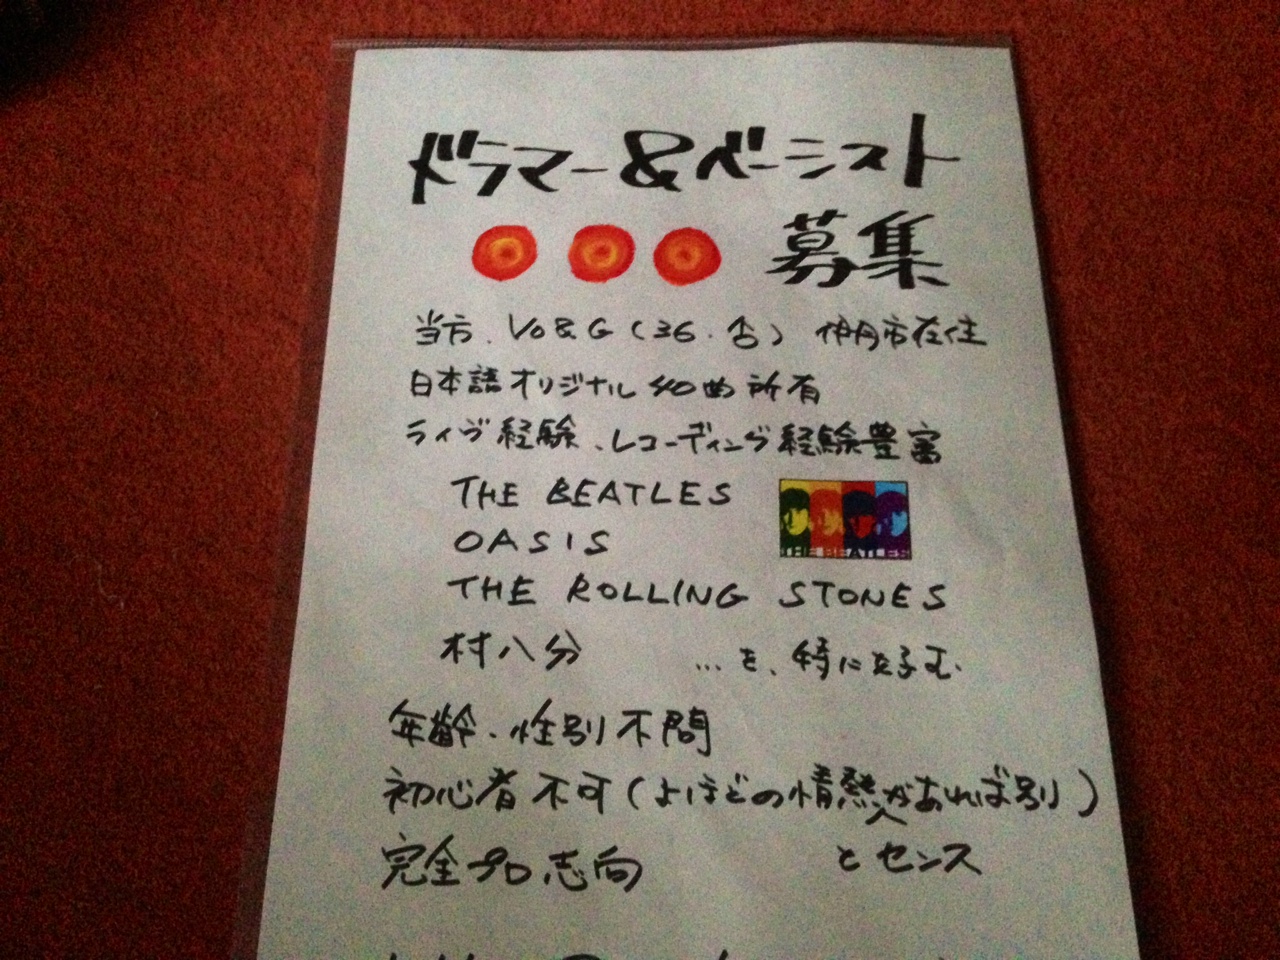 ドラマー&ベーシスト
募集
当方、Vo&G(36・♂) 伊丹市在住
日本語オリジナル40曲所有
ライヴ経験、レコーディング経験豊富
THE BEATLES
THE BEATLES
OASIS
THE ROLLING STONES
村八分 …を、特に好む.
年齢、性別不問
初心者不可(よほどの情熱があれば別)
とセンス
完全プロ志向